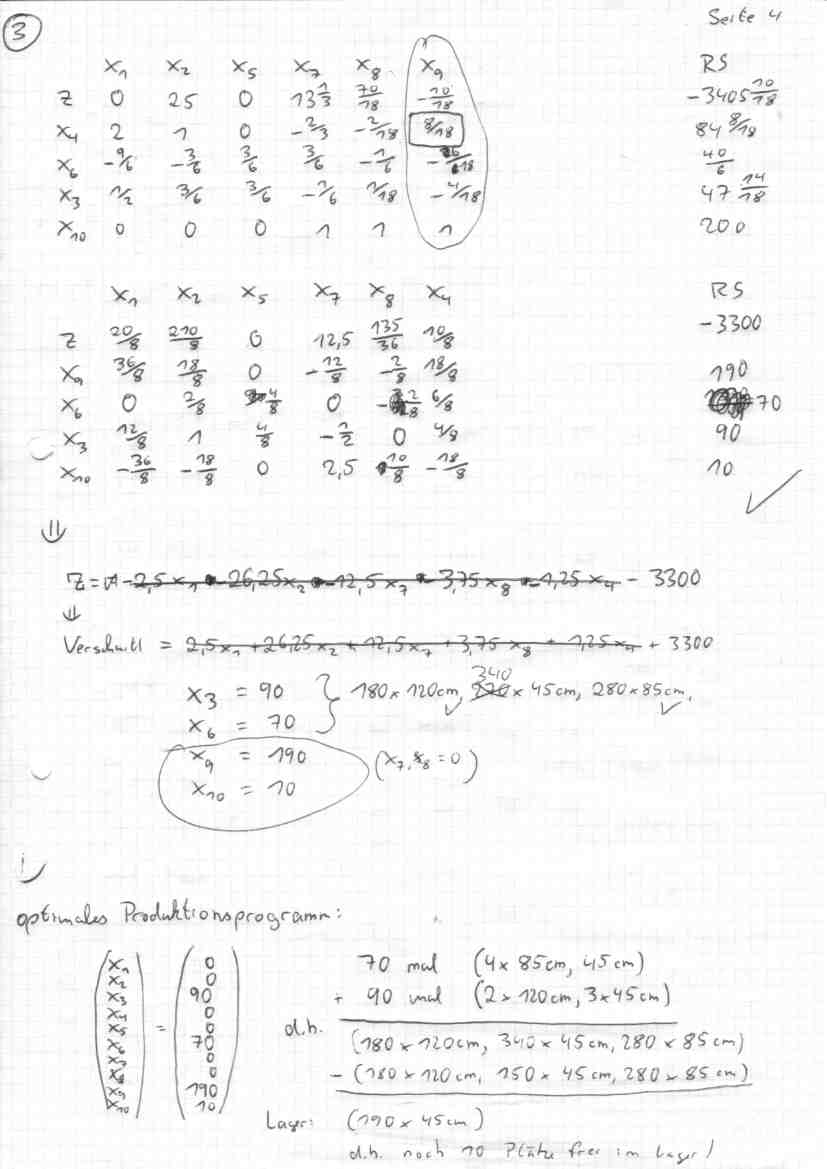 3
Seite 4
x₁ x₂ x₅ x₇ x₈ x₉ RS
Z 0 25 0 13 1/3 70/18 -10/18 -3405 10/18
x₄ 2 1 0 -2/3 -2/18 8/18 84 8/18
x₆ -9/6 -3/6 3/6 3/6 -1/6 40/6
x₃ 1/2 3/6 3/6 -1/6 1/18 -4/18 47 14/18
x₁₀ 0 0 0 1 1 1 200
x₁ x₂ x₅ x₇ x₈ x₄ RS
Z 20/8 210/8 0 12,5 135/36 10/8 -3300
x₉ 36/8 18/8 0 -12/8 -2/8 18/8 190
x₆ 0 2/8 4/8 0 6/8 70
x₃ 12/8 1 4/8 -1/2 0 4/8 90
x₁₀ -36/8 -18/8 0 2,5 10/8 -18/8 10
⇓
Z = -2,5x₁ - 26,25x₂ - 12,5x₇ - 3,75x₈ - 1,25x₄ - 3300
⇓
Verschnitt = 2,5x₁ + 26,25x₂ + 12,5x₇ + 3,75x₈ + 1,25x₄ + 3300
x₃ = 90 } 180 x 120cm, 340 x 45cm, 280 x 85cm,
x₆ = 70
x₉ = 190 (x₇, x₈ = 0)
x₁₀ = 10
optimales Produktionsprogramm:
(x₁ x₂ x₃ x₄ x₅ x₆ x₇ x₈ x₉ x₁₀) = (0 0 90 0 0 70 0 0 190 10)
70 mal (4 x 85cm, 45cm)
+ 90 mal (2 x 120cm, 3 x 45cm)
d.h. (180 x 120cm, 340 x 45cm, 280 x 85cm)
- (180 x 120cm, 150 x 45cm, 280 x 85cm)
Lager: (190 x 45cm)
d.h. noch 10 Plätze frei im Lager!